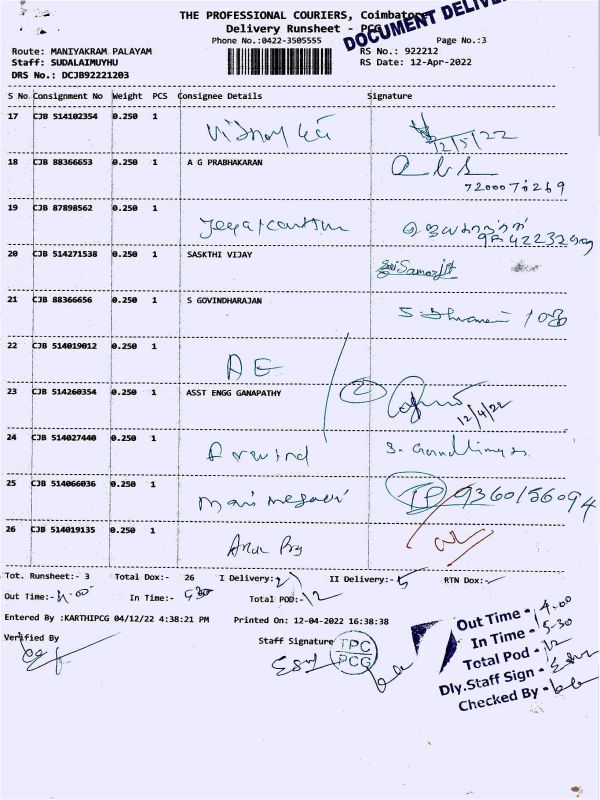 THE PROFESSIONAL COURIERS, Coimbatore
Delivery Runsheet - PCG
DOCUMENT DELIVER
Phone No.:0422-3505555 Page No.:3
Route: MANIYAKRAM PALAYAM RS No.: 922212
Staff: SUDALAIMUYHU RS Date: 12-Apr-2022
DRS No.: DCJB92221203
S No. Consignment No Weight PCS Consignee Details Signature
17 CJB 514102354 0.250 1
12/5/22
18 CJB 88366653 0.250 1 A G PRABHAKARAN
19 CJB 87898562 0.250 1
Jeyakanthan
20 CJB 514271538 0.250 1 SASKTHI VIJAY
21 CJB 88366656 0.250 1 S GOVINDHARAJAN
22 CJB 514019012 0.250 1
AE
23 CJB 514260354 0.250 1 ASST ENGG GANAPATHY
2
12/4/22
24 CJB 514027440 0.250 1
Arwind
25 CJB 514066036 0.250 1
TP 9360156094
26 CJB 514019135 0.250 1
Tot. Runsheet:- 3 Total Dox:- 26 I Delivery:- II Delivery:- 5 RTN Dox:-
Out Time:- In Time:- 5.30 Total POD:- 12
Entered By :KARTHIPCG 04/12/22 4:38:21 PM Printed On: 12-04-2022 16:38:38
Verified By Staff Signature
TPC
PCG
Out Time - 14.00
In Time - 5-30
Total Pod - 12
Dly.Staff Sign -
Checked By -